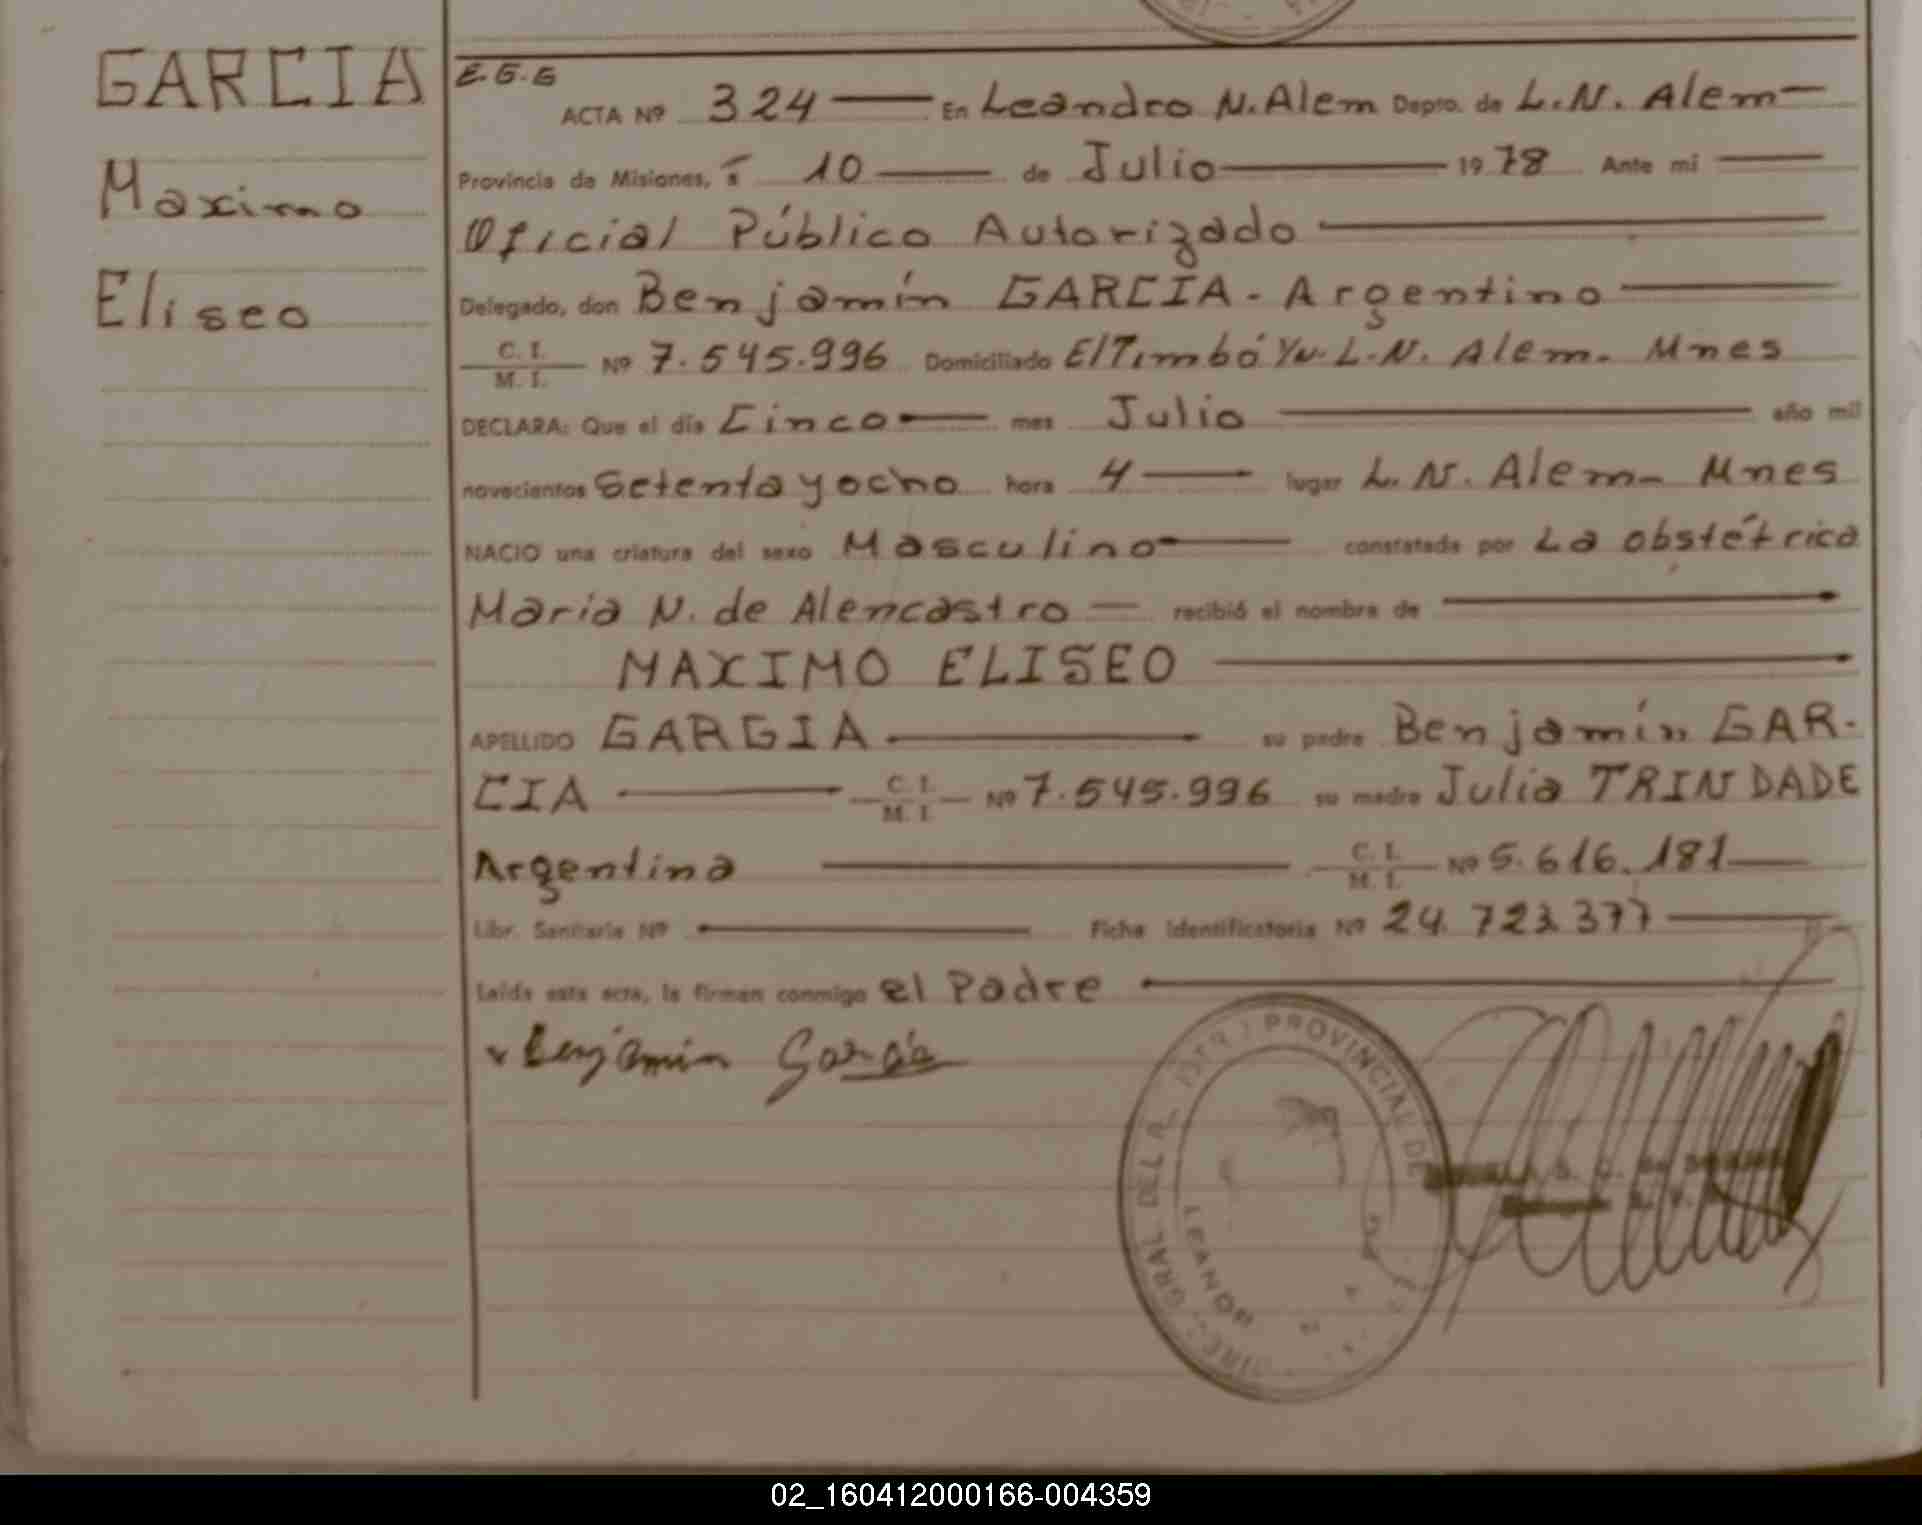 GARCIA
Maximo
Eliseo
E.G.G
ACTA Nº 324 En Leandro N. Alem Depto. de L.N. Alem
Provincia de Misiones, a 10 de Julio 1978 Ante mi
Oficial Público Autorizado
Delegado, don Benjamín GARCIA - Argentino
C. I. / M. I. Nº 7.545.996 Domiciliado El Timbó L.N. Alem - Mnes
DECLARA: Que el día Cinco mes Julio año mil
novecientos Setenta y ocho hora 4 lugar L.N. Alem - Mnes
NACIO una criatura del sexo Masculino constatada por La obstétrica
Maria N. de Alencastro recibió el nombre de
MAXIMO ELISEO
APELLIDO GARGIA su padre Benjamín GAR-
CIA C. I. / M. I. Nº 7.545.996 su madre Julia TRINDADE
Argentina C. I. / M. I. Nº 5.616.181
Libr. Sanitaria Nº Ficha Identificatoria Nº 24.723.377
Leída esta acta, la firman conmigo el Padre
Benjamin Garcia
GRAL DEL PROVINCIAL DE
LEANDR
02_160412000166-004359